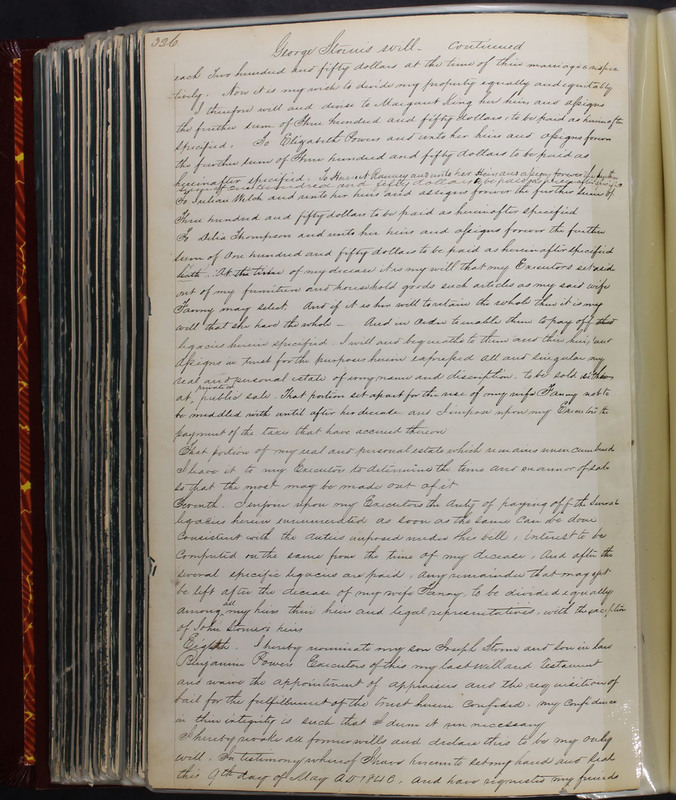 326
George Storms will - Continued
each Two hundred and fifty dollars at the time of their marriage respec
tively. Now it is my wish to divide my property equally and equitably
I therefore will and devise to Margaret King her heirs and assigns
the further sum of Three hundred and fifty Dollars, to be paid as hereinafter
specified. To Elizabeth Powers and unto her heirs and assigns forever
the further sum of Three hundred and fifty dollars to be paid as
hereinafter specified. To Harriet Ranney and unto her Heirs and assigns forever the further
sum of one hundred and fifty dollars to be paid as hereinafter specified
To Julian Welch and unto her heirs and assigns forever the further sum of
Three hundred and fifty dollars to be paid as hereinafter specified
To Delia Thompson and unto her heirs and assigns forever the further
sum of One hundred and fifty dollars to be paid as hereinafter specified
Sixth. At the time of my decease it is my will that my Executors set aside
out of my furniture and household goods such articles as my said wife
Fanny may select. And if it is her will to retain the whole then it is my
will that she have the whole - And in order to enable them to pay off the
legacies herein specified. I will and bequeath to them and their heirs and
assigns in trust for the purposes herein expressed all and singular my
real and personal estate of every name and discription. to be sold either
at private or public sale. That portion set apart for the use of my wife Fanny not to
be meddled with until after her decease and I impose upon my Executors the
payment of the taxes that have accrued thereon
That portion of my real and personal estate which remains unencumbered
I leave it to my Executors to determine the time and manner of sale
so that the most may be made out of it
Seventh. I enjoin upon my Executors the duty of paying off the several
legacies herein enumerated as soon as the same can be done
consistent with the duties imposed under this bill, interest to be
computed on the same from the time of my decease, And after the
several specific legacies are paid, any remainder that may yet
be left after the decease of my wife Fanny, to be divided equally
among all my heirs their heirs and legal representatives, with the exception
of John Storms heirs
Eighth. I hereby nominate my son Joseph Storms and son in law
Benjamin Powers Executors of this my last Will and Testament
and waive the appointment of appraisers and the requisition of
bail for the fulfillment of the trust herein confided. my confidence
in their integrity is such that I deem it unnecessary
I hereby revoke all former wills and declare this to be my only
will. In testimony whereof I have hereunto set my hand and seal
this 9th day of May AD 1846. And have requested my friends